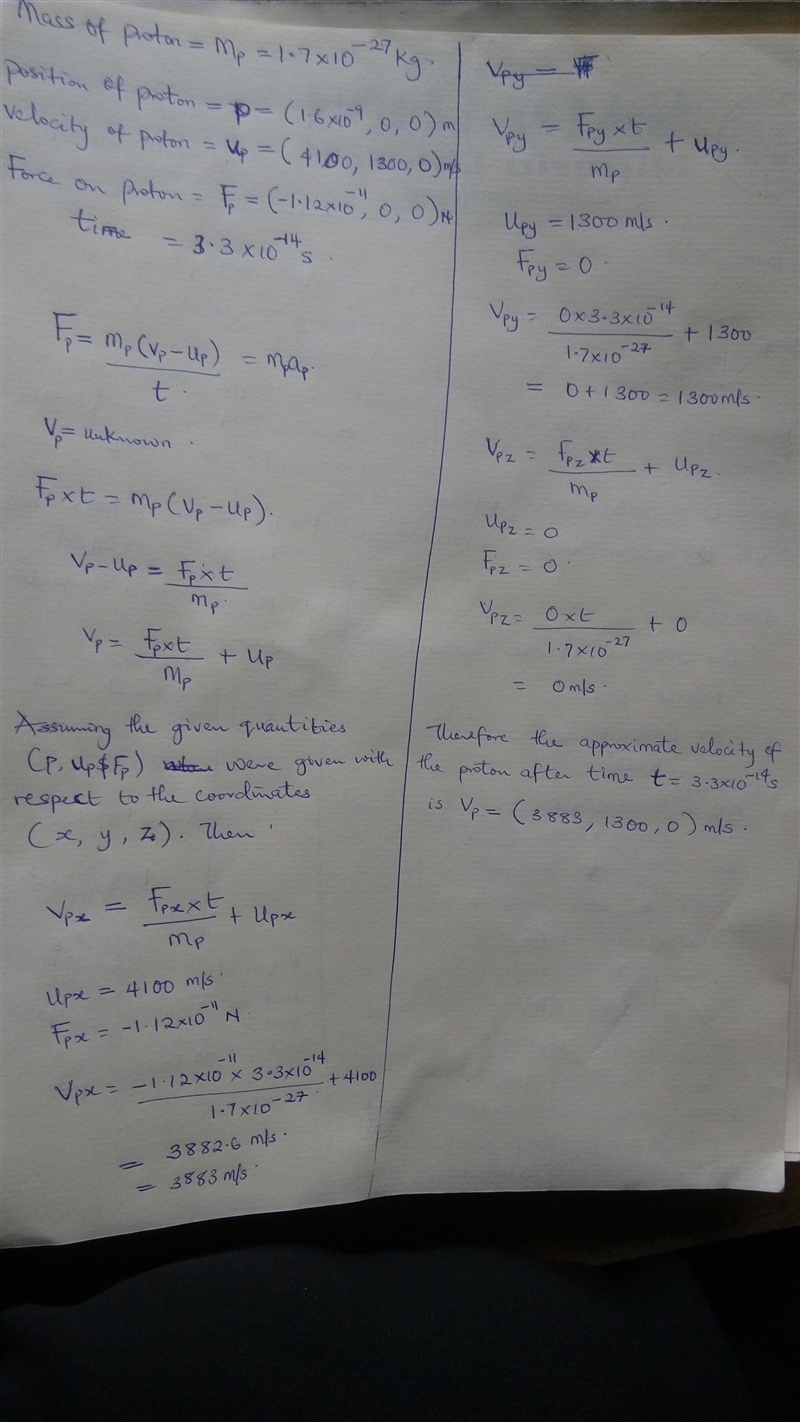 Mass of proton = Mp = 1.7×10⁻²⁷ Kg.
position of proton = p = (1.6×10⁻⁹, 0, 0) m
velocity of proton = Up = (4100, 1300, 0) m/s
Force on proton = Fp = (-1.12×10⁻¹¹, 0, 0) N
time = 3.3×10⁻¹⁴ s.
Fp = mp(Vp - Up) / t = mpap.
Vp = unknown.
Fp × t = mp(Vp - Up).
Vp - Up = Fp × t / mp.
Vp = Fp × t / Mp + Up
Assuming the given quantities
(P, Up & Fp) were given with
respect to the coordinates
(x, y, z). Then
Vpx = Fpx × t / mp + Upx
Upx = 4100 m/s.
Fpx = -1.12×10⁻¹¹ N
Vpx = -1.12×10⁻¹¹ × 3.3×10⁻¹⁴ / 1.7×10⁻²⁷ + 4100
= 3882.6 m/s.
= 3883 m/s.
Vpy =
Vpy = Fpy × t / mp + Upy.
Upy = 1300 m/s.
Fpy = 0.
Vpy = 0 × 3.3×10⁻¹⁴ / 1.7×10⁻²⁷ + 1300
= 0 + 1300 = 1300 m/s.
Vpz = Fpz × t / mp + Upz.
Upz = 0
Fpz = 0.
Vpz = 0 × t / 1.7×10⁻²⁷ + 0
= 0 m/s.
Therefore the approximate velocity of
the proton after time t = 3.3×10⁻¹⁴ s
is Vp = (3883, 1300, 0) m/s.